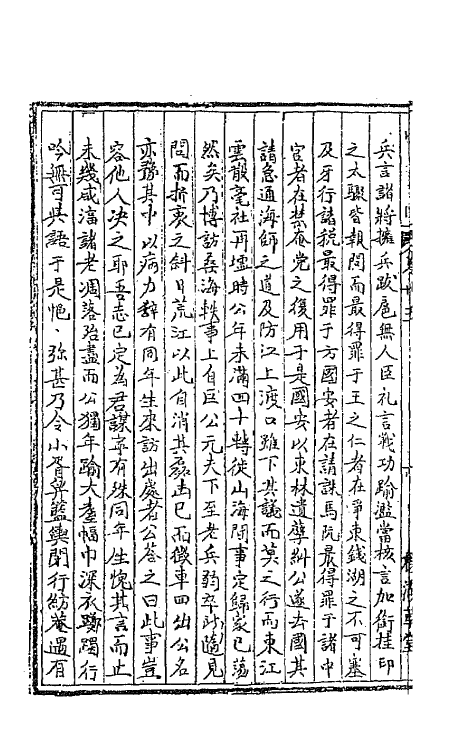 兵言諸將擁兵跋扈無人臣礼言戰功踰濫當核言加銜挂印
之太驟皆報聞而最得罪于王之仁者在爭東錢湖之不可塞
及牙行諸稅最得罪于方國安者在請誅馬阮最得罪于諸中
官者在禁奄党之復用于是國安以東林遺孽糾公遂去國其
請急通海師之道及防江上渡口雖下其議而莫之行而東江
雲散亳社再墟時公年未滿四十轉徙山海間事定歸家已蕩
然矣乃博訪桑海軼事上自巨公元夫下至老兵弱卒所隨見
問而折衷之斜日荒江以此自消其磊砢已而徵車四出公名
亦豫其中以病力辭有同年生來訪出處者公答之曰此事豈
容他人决之耶吾志已定為君謀亦有殊同年生愧其言而止
未幾咸淳諸老凋落殆盡而公獨年踰大耋幅巾深衣躑躅行
吟無可與語于是悒悒弥甚乃令小胥舁籃輿閒行紡巷過有